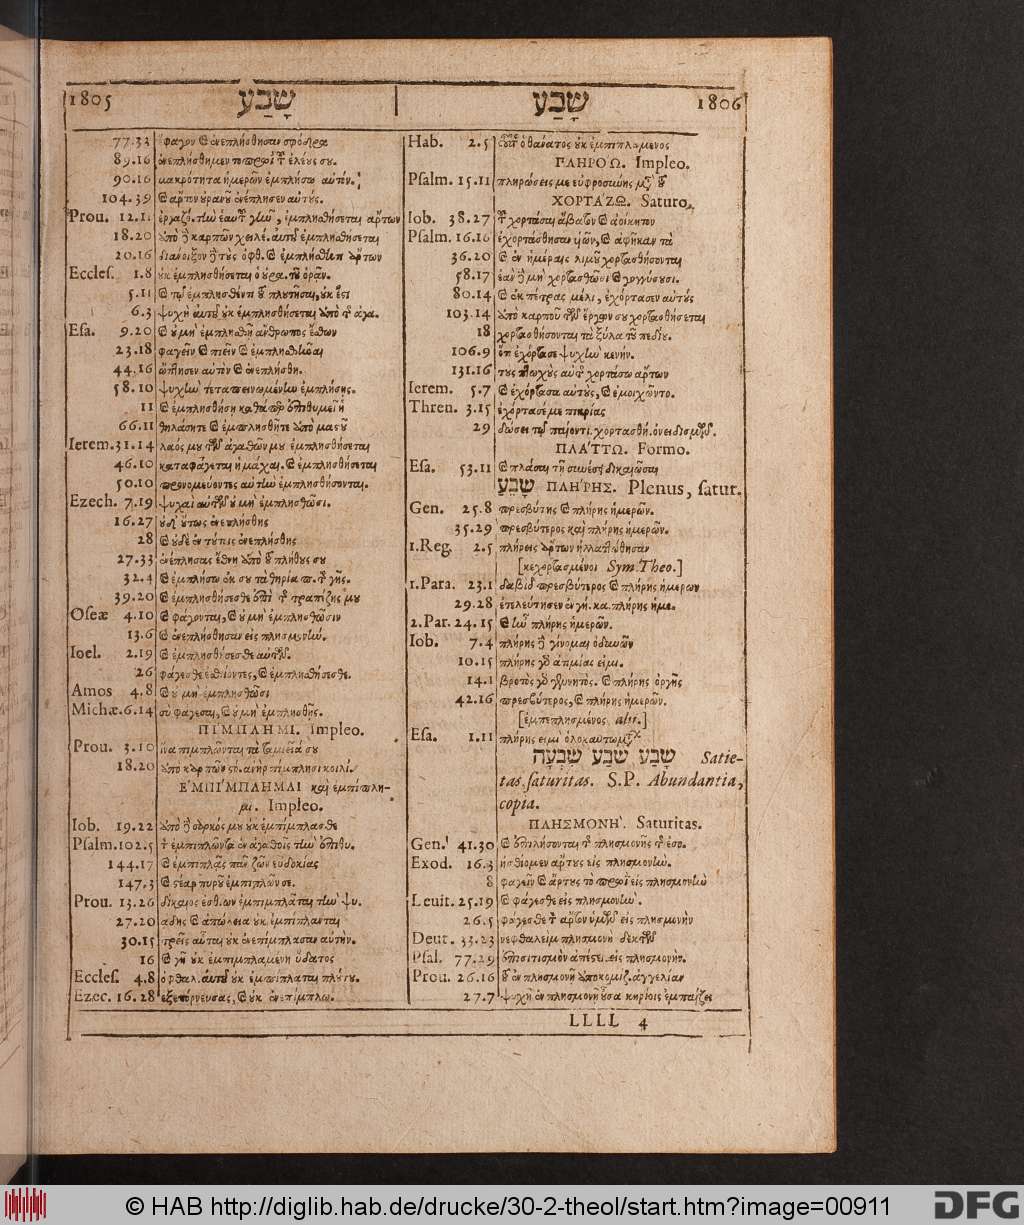 1805 שָׂבַע
77.33 ἔφαγον καὶ ἐνεπλήσθησαν σφόδρα
89.16 ἐνεπλήσθημεν τοπρωῒ τοῦ ἐλέους σου.
90.16 μακρότητα ἡμερῶν ἐμπλήσω αὐτόν.
104.39 καὶ ἄρτον οὐρανοῦ ἐνέπλησεν αὐτούς.
Prou. 12.11 ἐμπλησθήσεται ἄρτων
18.20 ἀπὸ καρπῶν ἐμπλησθήσεται
20.16 διάνοιξον καὶ ἐμπλήσθητι ἄρτων
Eccles. 1.8 οὐκ ἐμπλησθήσεται
5.11 καὶ τῷ ἐμπλησθέντι τοῦ πλουτῆσαι, οὐκ ἔστι
6.3 ψυχὴ αὐτοῦ οὐκ ἐμπλησθήσεται ἀπὸ τῆς ἀγα.
Esa. 9.20 καὶ οὐ μὴ ἐμπλησθῇ ἄνθρωπος ἔσθων
23.18 φαγεῖν καὶ πιεῖν καὶ ἐμπλησθῆναι
44.16 ὤπτησεν αὐτὸν καὶ ἐνεπλήσθη.
58.10 ψυχὴν τεταπεινωμένην ἐμπλήσῃς.
11 καὶ ἐμπλησθήσῃ καθάπερ ἐπιθυμεῖ ἡ
66.11 θηλάσητε καὶ ἐμπλησθῆτε ἀπὸ μαστοῦ
Ierem. 31.14 λαός μου τῶν ἀγαθῶν μου ἐμπλησθήσεται
46.10 καταφάγεται ἡ μάχαι. καὶ ἐμπλησθήσεται
50.10 προνομεύοντες αὐτὴν ἐμπλησθήσονται.
Ezech. 7.19 ψυχαὶ αὐτῶν οὐ μὴ ἐμπλησθῶσι.
16.27 οὐδ' οὕτως ἐνεπλήσθης
28 καὶ οὐδὲ ἐν τούτοις ἐνεπλήσθης
27.33 ἐνέπλησας ἔθνη ἀπὸ τοῦ πλήθους σου
32.4 καὶ ἐμπλήσω ἐκ σοῦ τὰ θηρία π. τῆς γῆς.
39.20 καὶ ἐμπλησθήσεσθε ἐπὶ τῆς τραπέζης μου
Oseæ 4.10 καὶ φάγονται, καὶ οὐ μὴ ἐμπλησθῶσιν
13.6 καὶ ἐνεπλήσθησαν εἰς πλησμονήν.
Ioel. 2.19 καὶ ἐμπλησθήσεσθε αὐτῶν.
26 φάγεσθε ἐσθίοντες, καὶ ἐμπλησθήσεσθε.
Amos 4.8 καὶ οὐ μὴ ἐμπλησθῶσι
Michæ. 6.14 σὺ φάγεσαι, καὶ οὐ μὴ ἐμπλησθῇς.
ΠΙΜΠΛΗΜΙ. Impleo.
Prou. 3.10 ἵνα πιμπλῶνται τὰ ταμιεῖά σου
18.20
ΕΜΠΙΜΠΛΗΜΑΙ καὶ ἐμπίπλη-
μι. Impleo.
Iob. 19.22 ἀπὸ σαρκός μου οὐκ ἐμπίμπλασθε
Psalm. 102.5 τ ἐμπιπλῶντα ἐν ἀγαθοῖς τὴν ἐπιθυ.
144.17 καὶ ἐμπιπλᾷς πᾶν ζῶον εὐδοκίας
147.3 καὶ στέαρ πυροῦ ἐμπιπλῶν σε.
Prou. 13.26 δίκαιος ἔσθων ἐμπιπλᾶται τὴν ψυ.
27.20 ᾅδης καὶ ἀπώλεια οὐκ ἐμπίπλανται
30.15 τρεῖς αὗται οὐκ ἐνεπίμπλασαν αὐτήν.
16 καὶ γῆ οὐκ ἐμπιμπλαμένη ὕδατος
Eccles. 4.8 ὀφθαλ. αὐτοῦ οὐκ ἐμπίπλαται πλούτου.
Ezec. 16.28 ἐξεπόρνευσας, καὶ οὐκ ἐνεπίμπλω.
שָׂבַע 1806
Hab. 2.5 ὁ θάνατος οὐκ ἐμπιπλάμενος
ΠΛΗΡΟΩ. Impleo.
Psalm. 15.11 πληρώσεις με εὐφροσύνης
ΧΟΡΤΑΖΩ. Saturo.
Iob. 38.27 χορτάσαι ἄβατον καὶ ἀοίκητον
Psalm. 16.16 ἐχορτάσθησαν ὑῶν, καὶ ἀφῆκαν τὰ
36.20 καὶ ἐν ἡμέραις λιμοῦ χορτασθήσονται
58.17 ἐὰν μὴ χορτασθῶσι καὶ γογγύσουσι.
80.14 καὶ ἐκ πέτρας μέλι, ἐχόρτασεν αὐτούς
103.14 ἀπὸ καρποῦ τῶν ἔργων σου χορτασθήσεται
18 χορτασθήσονται τὰ ξύλα τοῦ πεδίου.
106.9 ὅτι ἐχόρτασε ψυχὴν κενήν.
131.16 τοὺς πτωχοὺς αὐτῆς χορτάσω ἄρτων
Ierem. 5.7 καὶ ἐχόρτασα αὐτούς, καὶ ἐμοιχῶντο.
Thren. 3.15 ἐχόρτασέ με πικρίας
29 δώσει τῷ παίοντι. χορτασθή. ὀνειδισμῶν.
ΠΛΑΤΤΩ. Formo.
Esa. 53.11 καὶ πλάσαι τῇ συνέσει δικαιῶσαι
שָׂבֵעַ ΠΛΗΡΗΣ. Plenus, satur.
Gen. 25.8 πρεσβύτης καὶ πλήρης ἡμερῶν.
35.29 πρεσβύτερος καὶ πλήρης ἡμερῶν.
1.Reg. 2.5 πλήρεις ἄρτων ἠλλατώθησαν
[κεχορτασμένοι Sym. Theo.]
1.Para. 23.1 δαβὶδ πρεσβύτερος καὶ πλήρης ἡμερῶν
29.28 ἐτελεύτησεν ἐν γή. κα. πλήρης ἡμε.
2.Par. 24.15 καὶ ἦν πλήρης ἡμερῶν.
Iob. 7.4 πλήρης γίνομαι ὀδυνῶν
10.15 πλήρης γὰρ ἀτιμίας εἰμι.
14.1 βροτὸς γὰρ γυναικὸς. καὶ πλήρης ὀργῆς
42.16 πρεσβύτερος, καὶ πλήρης ἡμερῶν.
[ἐμπεπλησμένος aliu.]
Esa. 1.11 πλήρης εἰμὶ ὁλοκαυτωμάτων
שָׂבָע שֹׂבַע שָׂבְעָה Satie-
tas, saturitas. S.P. Abundantia,
copia.
ΠΛΗΣΜΟΝΗ. Saturitas.
Gen. 41.30 καὶ ἐπιλήσονται τῆς πλησμονῆς τῆς ἐσο.
Exod. 16.3 ἠσθίομεν ἄρτους εἰς πλησμονήν.
8 φαγεῖν καὶ ἄρτους τοπρωῒ εἰς πλησμονήν
Leuit. 25.19 καὶ φάγεσθε εἰς πλησμονήν.
26.5 φάγεσθε τὸν ἄρτον ὑμῶν εἰς πλησμονήν
Deut. 33.23 νεφθαλεὶμ πλησμονὴ δεκτῶν
Psal. 77.29 ἐπισιτισμὸν ἀπέστει. εἰς πλησμονήν.
Prou. 26.16 τοῦ ἐν πλησμονῇ ἀποκομιζ. ἀγγελίαν
27.7 ψυχὴ ἐν πλησμονῇ οὖσα κηρίοις ἐμπαίζει
LLLL 4
© HAB http://diglib.hab.de/drucke/30-2-theol/start.htm?image=00911
DFG